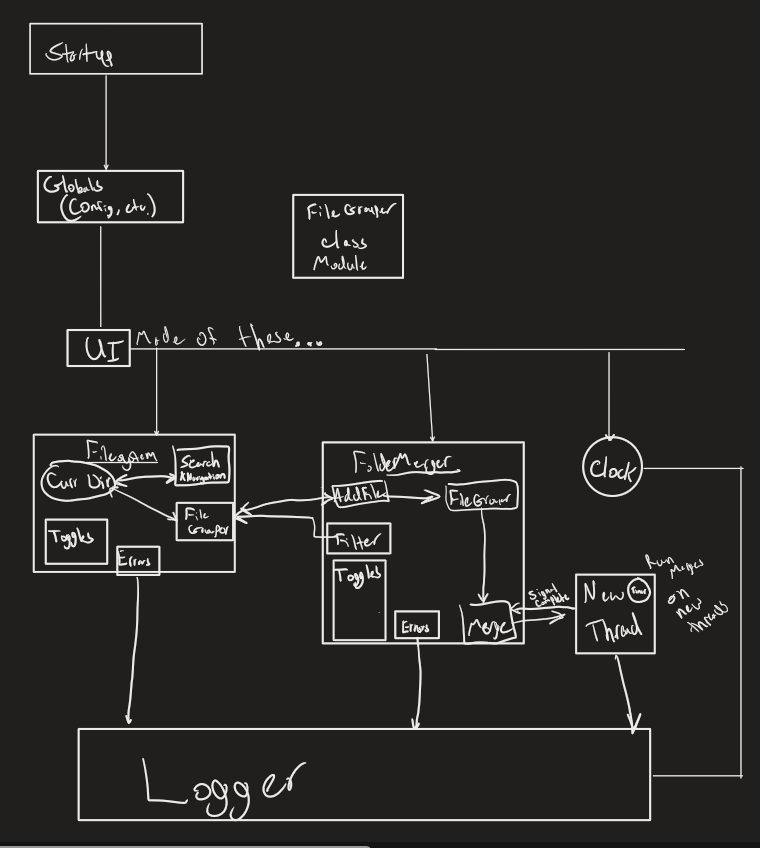 Startup
Globals
(Config, etc.)
FileGrouper
class
Module
UI
Made of these...
Filesystem
Search
& Navigation
Curr Dir
File
Grouper
Toggles
Errors
FolderMerger
AddFile
FileGrouper
Filter
Toggles
Errors
Merge
Clock
Signal
Complete
New
Timer
Thread
Run
Merges
on
new
threads
Logger